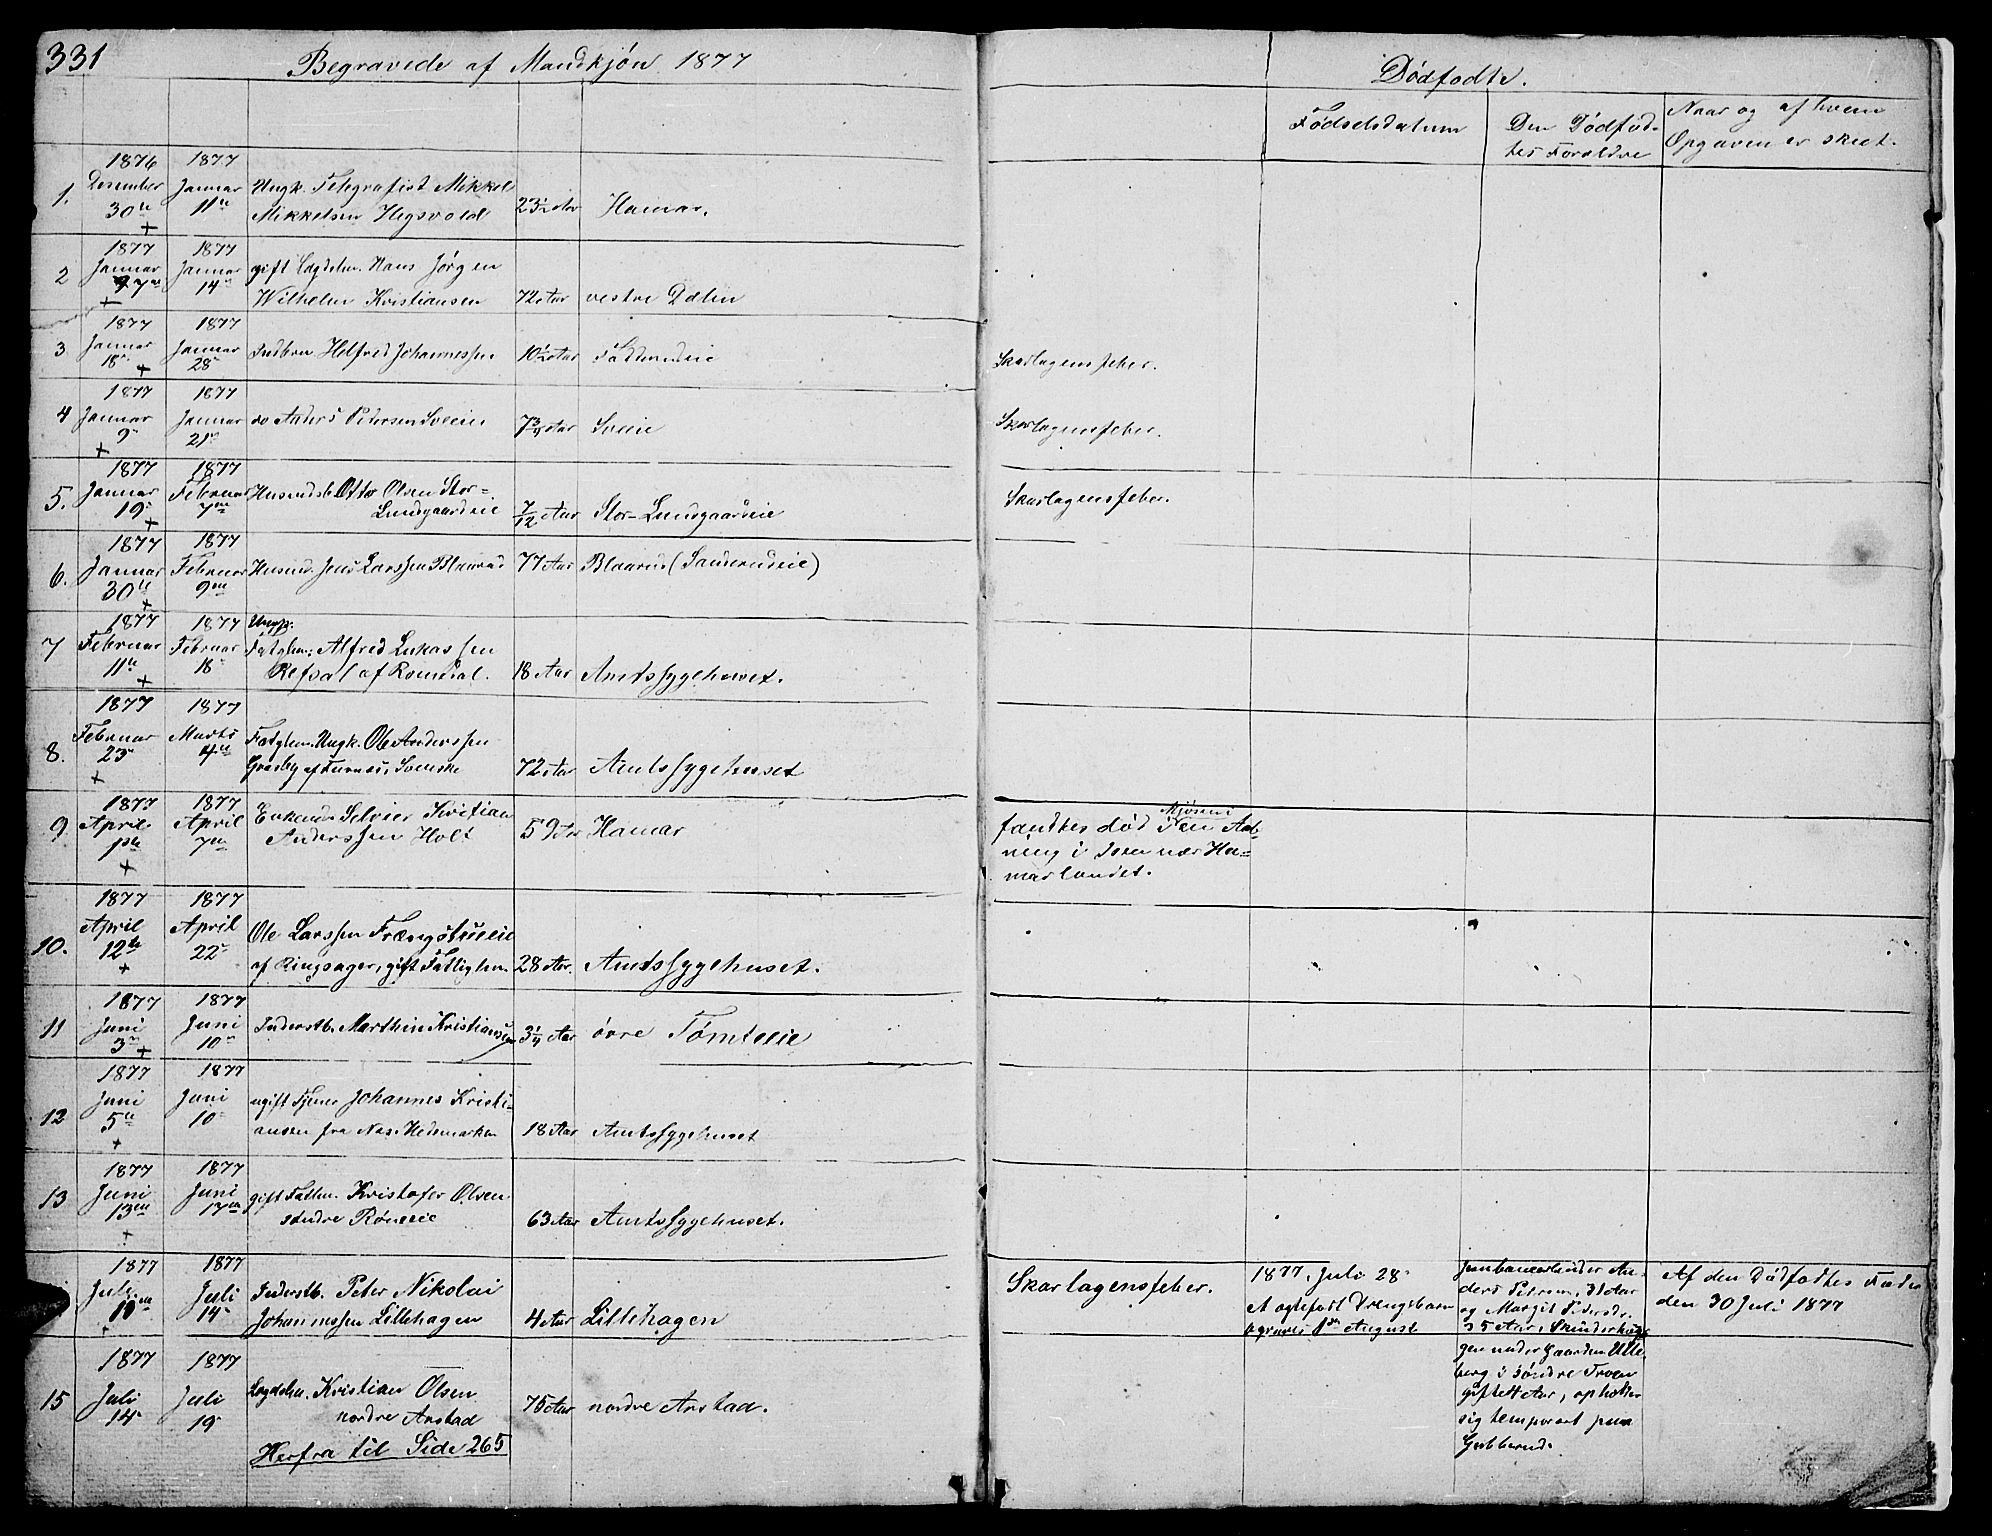 331
Begravede af Mandkjøn 1877
Dødfødte.
Fødselsdatum
Den Dødfød-
tes Foreldre
Naar og af hvem
Opgaven er skeet.
1.
1876
Desember
30te
+
1877
Januar
11te
Ungk. Telegrafist Mikkel
Mikkelsen Hegsvold
23½ Aar
Hamar.
2
1877
Januar
7de
+
1877
Januar
14
gift Lægdslm. Hans Jørgen
Wilhelm Kristiansen
72 Aar
vestre Dælin
3
1877
Januar
18
+
1877
Januar
28
Helfred Johannessen
10½ Aar
Skarlagensfeber.
4
1877
Januar
9
+
1877
Januar
21
do Anders Petersen Sveeie
7¾ Aar
Sveeie
Skarlagensfeber.
5.
1877
Januar
19
+
1877
Februar
7de
Husmdsb. Otto Olsen Stor-
Lundgaardseie
7/12 Aar
Stor-Lundgaardseie
Skarlagensfeber.
6.
1877
Januar
30te
+
1877
Februar
9de
Husmd. Jens Larssen Blaarud
77 Aar
Blaarud (Sanderudeie)
7
1877
Februar
11te
+
1877
Februar
18
Ungk.
Fatglm. Alfred Lukassen
Refsal af Romsdal.
18 Aar
Amtssygehuset.
8.
1877
Februar
23
+
1877
Marts
4de
Fatglem. Ungk. Ole Anderssen
Græsby af Furnes, Svenske
72 Aar
Amtssygehuset
9
1877
April
1ste
+
1877
April
7de
Enkemd. Selveier Kristian
Anderssen Holt
59 Aar
Hamar
Mjøsen i
fandtes død i en Aab-
ning i Isen nær Ha-
marlandet.
10.
1877
April
12te
+
1877
April
22
Ole Larssen Frængstueeie
af Ringsager, gift Fatliglem.
28 Aar.
Amtssygehuset.
11
1877
Juni
3
+
1877
Juni
10
Inderstb. Marthin Kristiansen
3¼ Aar
øvre Tømteeie
12
1877
Juni
5te
+
1877
Juni
10
ugift Tjener Johannes Kristi-
ansen fra Nes. Hedemarken
18 Aar
Amtssygehuset
13
1877
Juni
13de
+
1877
Juni
17de
gift Fatlm. Kristofer Olsen
søndre Røneeie
63 Aar
Amtssygehuset.
1877
Juli
1877
Juli
14
Inderstb. Peter Nikolai
Johannessen Lillehagen
4 Aar
Lillehagen
Skarlagensfeber.
1877, Juli 28
Et ægtefødt Drengebarn
begraves 1ste August
Jernbanearbeider An-
ders Petersen, 31 Aar
og Margit Pedersdr.
35 Aar,
gen under Gaarden Ulle-
berg i søndre Froen
gifte 11 Aar, opholder
sig temporært paa
Gubberud.
Af den Dødfødtes Fader
den 30 Juli 1877
15
1877
Juli
14
1877
Juli
19
Lægdslm. Kristian Olsen
nordre Anstad
75 Aar
nordre Anstad.
Herfra til Side 265